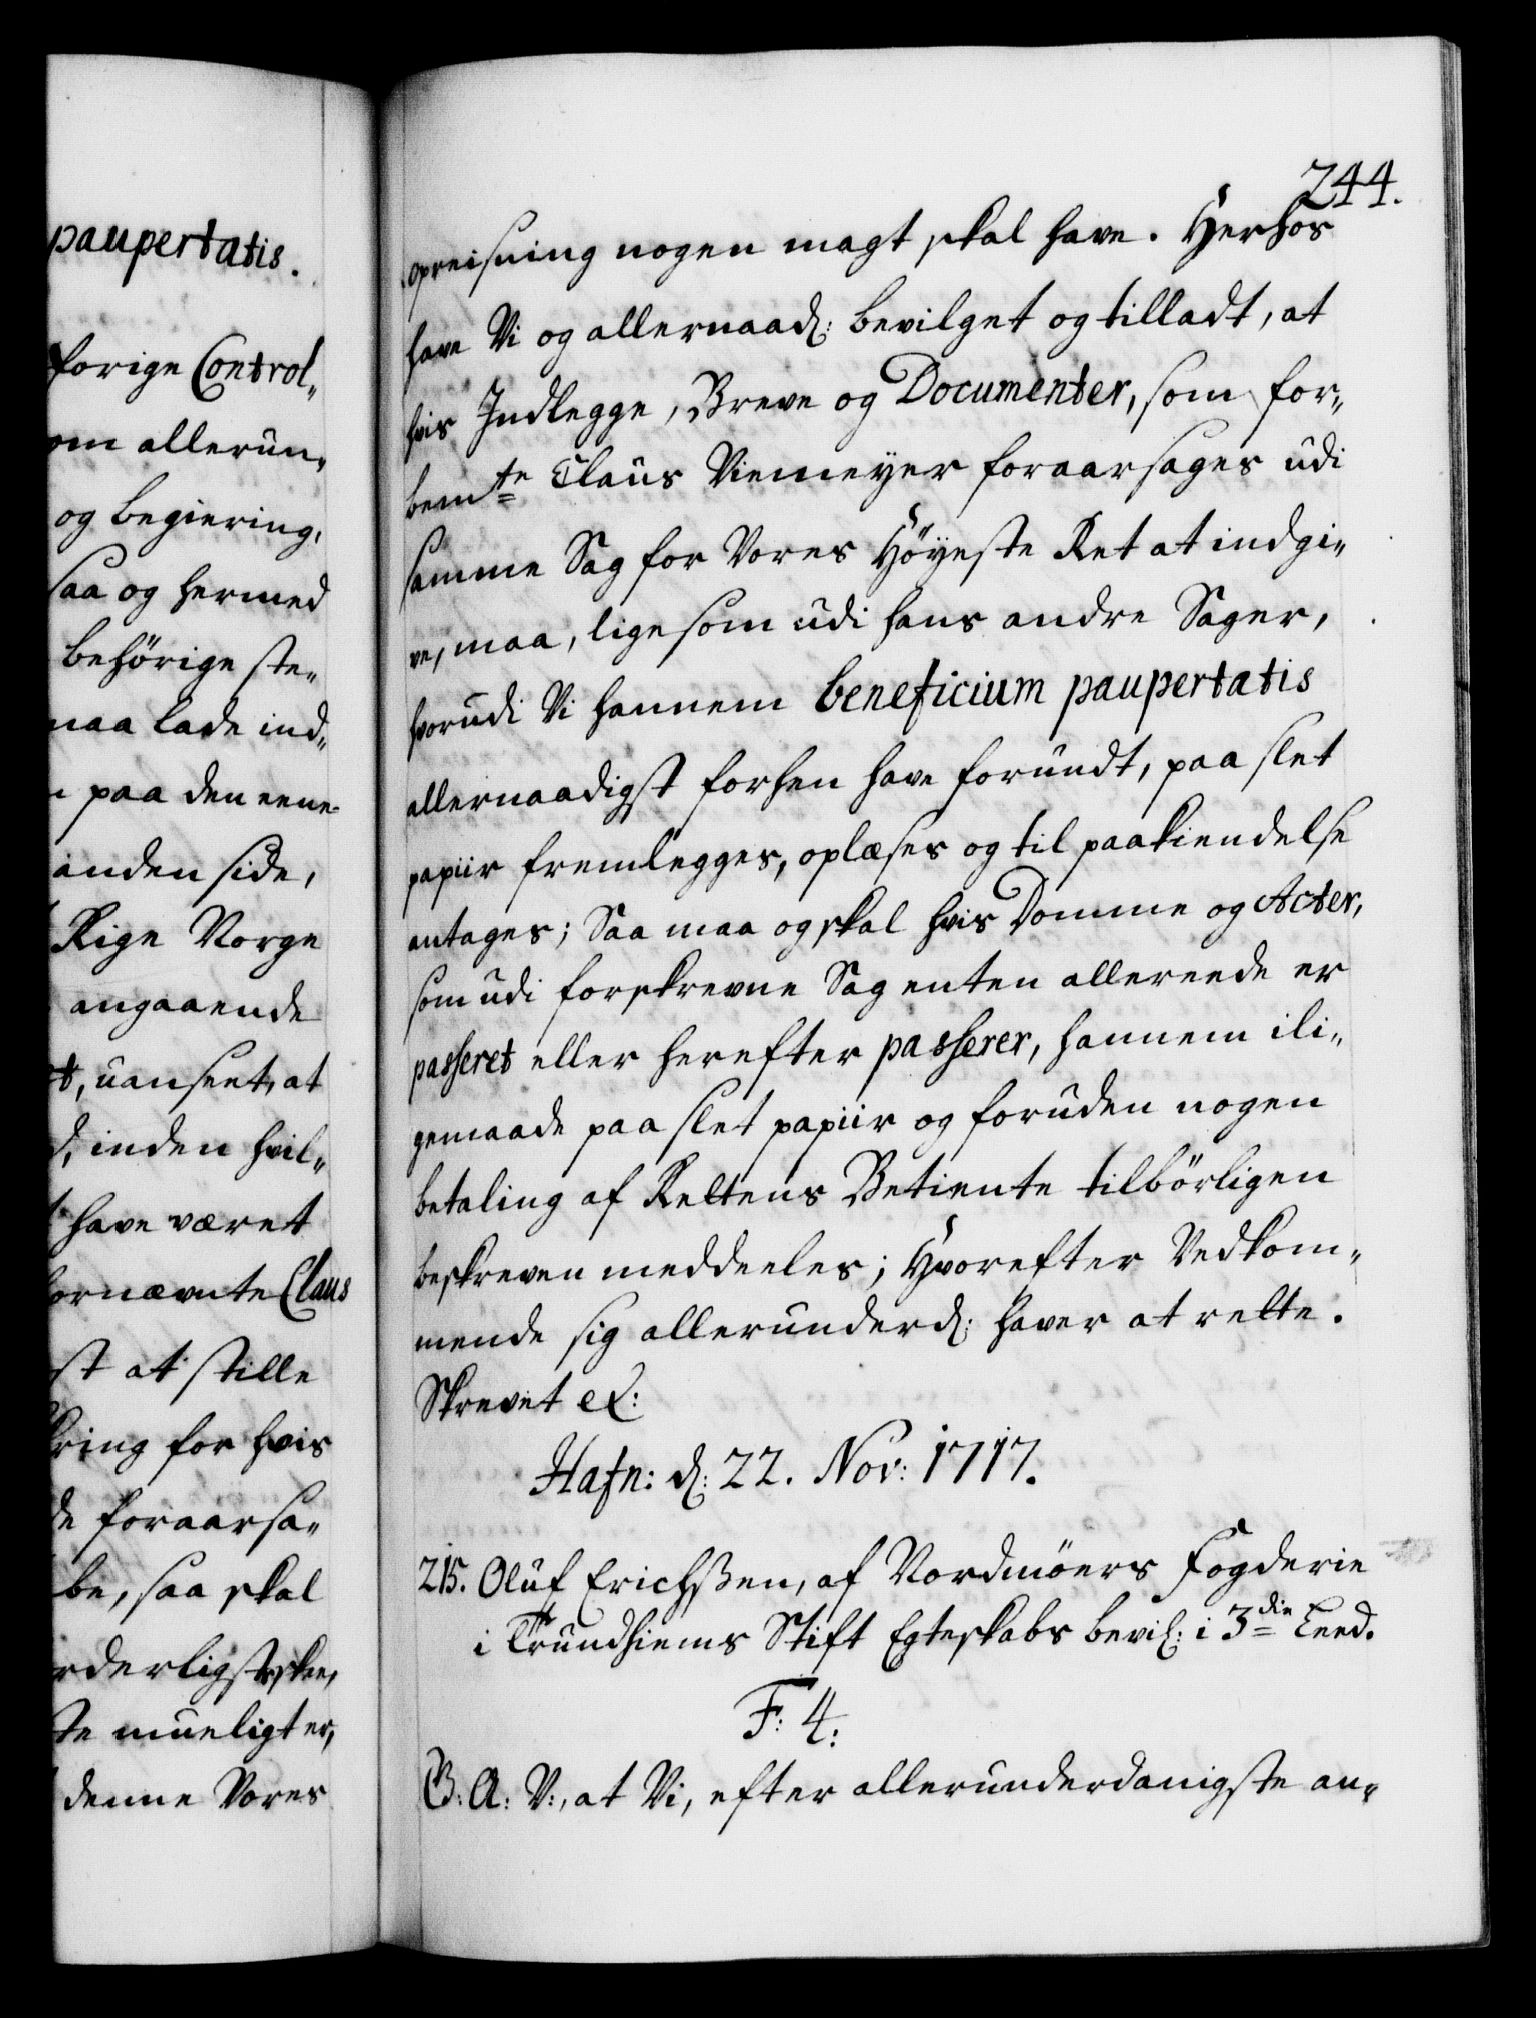 paupertatis.
forige Control„
om allerun„
og begiering,
saa og hermed
behörige ste„
maa lade ind„
paa den eene
anden side,
Rige Norge
angaaende
uanseet, at
inden hvil„
have været
fornævnte Claus
st at stille
for hvis
de foraarsa„
be, saa skal
rderligst skee,
te mueligt er,
denne Vores
244.
opreisning nogen magt skal have. Herhos
have Vi og allernaad: bevilget og tilladt, at
hvis Indlegge, Breve og Documenter, som for„
bemte Claus Niemeyer foraarsages udi
samme Sag for Vores Höyeste Ret at indgi„
ve, maa, ligesom udi hans andre Sager,
hvorudi Vi hannem beneficium paupertatis
allernaadigst forhen have forundt, paa slet
papiir fremlegges, oplæses og til paakiendelse
antages; Saa maa og skal hvis Domme og Acter,
som udi forskrevne Sag enten allereede er
passeret eller herefter passerer, hannem ili„
gemaade paa slet papiir og foruden nogen
betaling af Rettens Betiente tilbörligen
beskreven meddeeles; Hvorefter Vedkom„
mende sig allerunderd: haver at rette.
Skrevet etc:
Hafn: d: 22. Nov: 1717.
215. Oluf Erichßen, af Nordmöers Fogderie
i Trundhiems Stift Egteskabs bevil: i 3die Leed.
F: 4:
G: A: V:, at Vi, efter allerunderdanigste an„